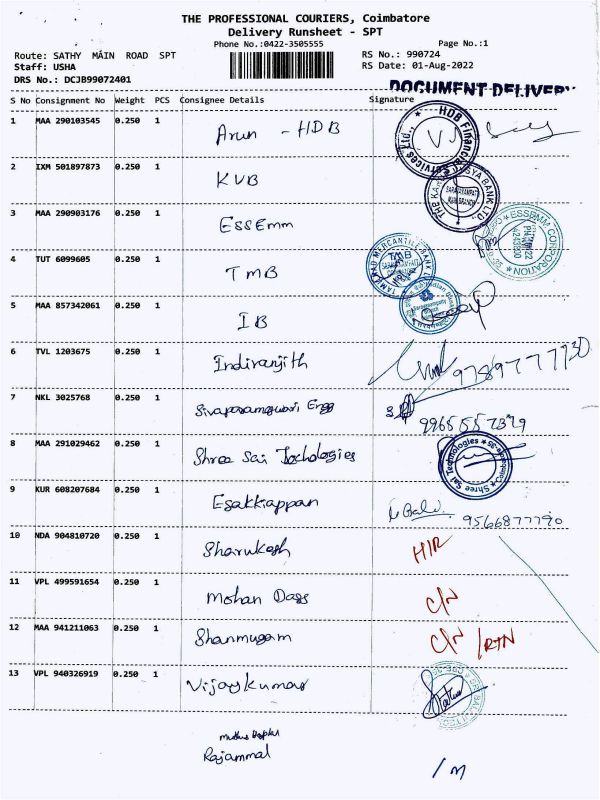 THE PROFESSIONAL COURIERS, Coimbatore
Delivery Runsheet - SPT
Phone No.:0422-3505555 Page No.:1
Route: SATHY MAIN ROAD SPT RS No.: 990724
Staff: USHA RS Date: 01-Aug-2022
DRS No.: DCJB99072401
DOCUMENT DELIVERY
S No Consignment No Weight PCS Consignee Details Signature
1 MAA 290103545 0.250 1 Arun - HDB HDB Financial Services Ltd.,
2 IXM 501897873 0.250 1 KVB
3 MAA 290903176 0.250 1 ESSEmm
4 TUT 6099605 0.250 1 TMB TAMILNAD MERCANTILE BANK TMB
5 MAA 857342061 0.250 1 IB
6 TVL 1203675 0.250 1 Indiranjith
7 NKL 3025768 0.250 1 Engg
8 MAA 291029462 0.250 1 Shree Sai Technologies Shree Sai Technologies
9 KUR 608207684 0.250 1 Esakkiappan 9566877790
10 NDA 904810720 0.250 1 Sharukesh
11 VPL 499591654 0.250 1 Mohan Dass C/N
12 MAA 941211063 0.250 1 Shanmugam C/N /RTN
13 VPL 940326919 0.250 1 Vijaykumar
Rajammal